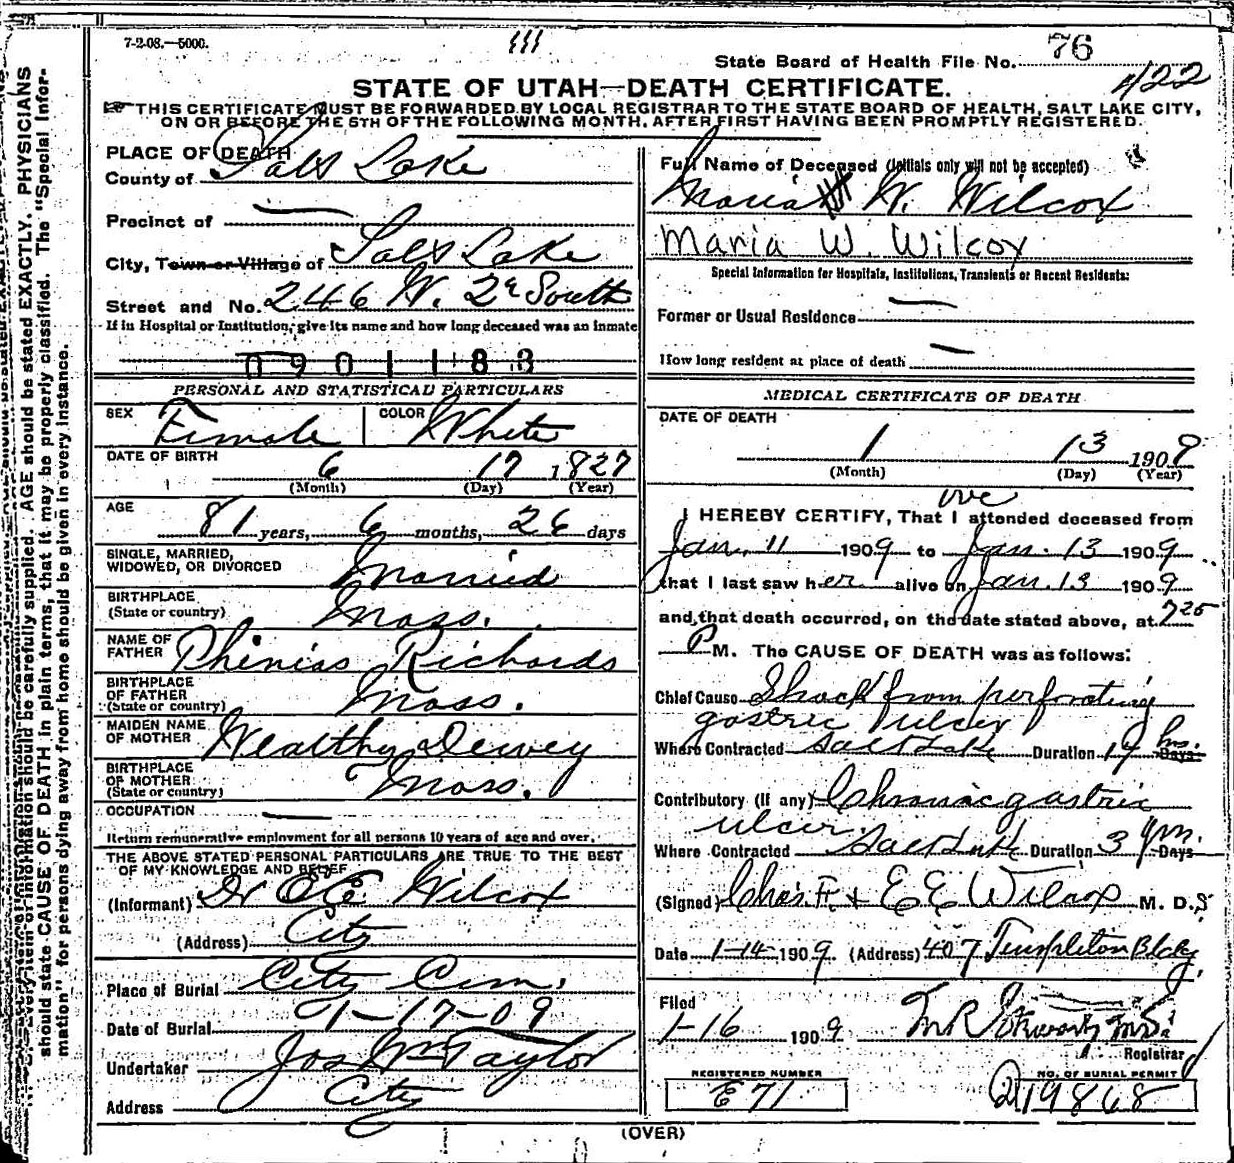 7-2-08.—5000.
State Board of Health File No. 76
422
STATE OF UTAH—DEATH CERTIFICATE.
THIS CERTIFICATE MUST BE FORWARDED BY LOCAL REGISTRAR TO THE STATE BOARD OF HEALTH, SALT LAKE CITY,
ON OR BEFORE THE 5TH OF THE FOLLOWING MONTH, AFTER FIRST HAVING BEEN PROMPTLY REGISTERED.
should state CAUSE OF DEATH in plain terms, that it may be properly classified. The "Special Infor-
mation" for persons dying away from home should be given in every instance.
Every item of information should be carefully supplied. AGE should be stated EXACTLY. PHYSICIANS
PLACE OF DEATH
County of Salt Lake
Precinct of —
City, Town or Village of Salt Lake
Street and No. 246 W. 2d South
If in Hospital or Institution, give its name and how long deceased was an inmate
0901183
PERSONAL AND STATISTICAL PARTICULARS
SEX Female COLOR White
DATE OF BIRTH 6 17 1827
(Month) (Day) (Year)
AGE 81 years, 6 months, 26 days
SINGLE, MARRIED,
WIDOWED, OR DIVORCED Married
BIRTHPLACE
(State or country) Mass.
NAME OF
FATHER Phinias Richards
BIRTHPLACE
OF FATHER
(State or country) Mass.
MAIDEN NAME
OF MOTHER Wealthy Dewey
BIRTHPLACE
OF MOTHER
(State or country) Mass.
OCCUPATION —
Return remunerative employment for all persons 10 years of age and over.
THE ABOVE STATED PERSONAL PARTICULARS ARE TRUE TO THE BEST
OF MY KNOWLEDGE AND BELIEF
(Informant) Dr Wilcox
(Address) City
Place of Burial City Cem.
Date of Burial 1-17-09
Undertaker Jos Wm Taylor
Address City
Full Name of Deceased (Initials only will not be accepted)
Maria W. Wilcox
Maria W. Wilcox
Special Information for Hospitals, Institutions, Transients or Recent Residents:
Former or Usual Residence —
How long resident at place of death —
MEDICAL CERTIFICATE OF DEATH
DATE OF DEATH
1 13 1909
(Month) (Day) (Year)
we
I HEREBY CERTIFY, That I attended deceased from
Jan. 11 1909 to Jan. 13 1909
that I last saw her alive on Jan. 13 1909
and that death occurred, on the date stated above, at 7 25
P M. The CAUSE OF DEATH was as follows:
Chief Cause Shock from perforating
gastric ulcer
Where Contracted Salt Lake Duration 14 hrs. Days
Contributory (if any) Chronic gastric
ulcer.
Where Contracted Salt Lake Duration 3 yrs. Days
(Signed) Chas. F. + E E Wilcox M. D.s
Date 1-14-1909. (Address) 407 Templeton Bldg.
Filed
1-16 1909 M R Stewart M.D.
Registrar
REGISTERED NUMBER
E 71
NO. OF BURIAL PERMIT
19868
(OVER)